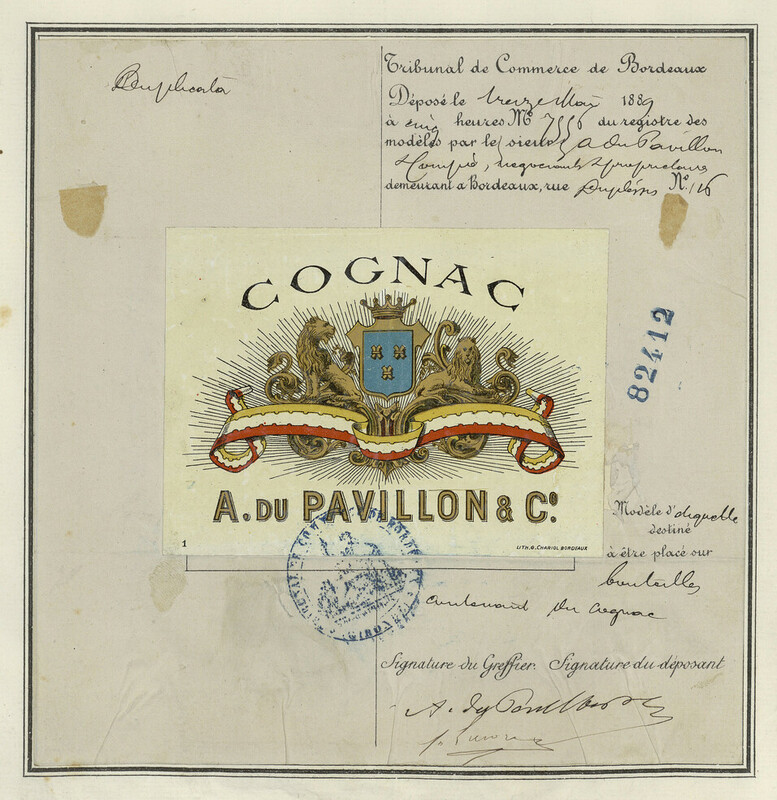 Duplicata
Tribunal de Commerce de Bordeaux
Déposé le treize Mai 1889
à cinq heures No 7556 du registre des
modèles par le sieur A du Pavillon
& Compie, negociants & proprietaires
demeurant a Bordeaux, rue Duplessis No. 116
COGNAC
82412
A. DU PAVILLON & Co.
1
LITH. G. CHARIOL BORDEAUX
Modèle d'étiquette
destiné
à être placé sur
bouteilles
contenant du cognac
TRIBUNAL DE COMMERCE DE BORDEAUX
GIRONDE
Signature du Greffier. Signature du déposant
A. du Pavillon